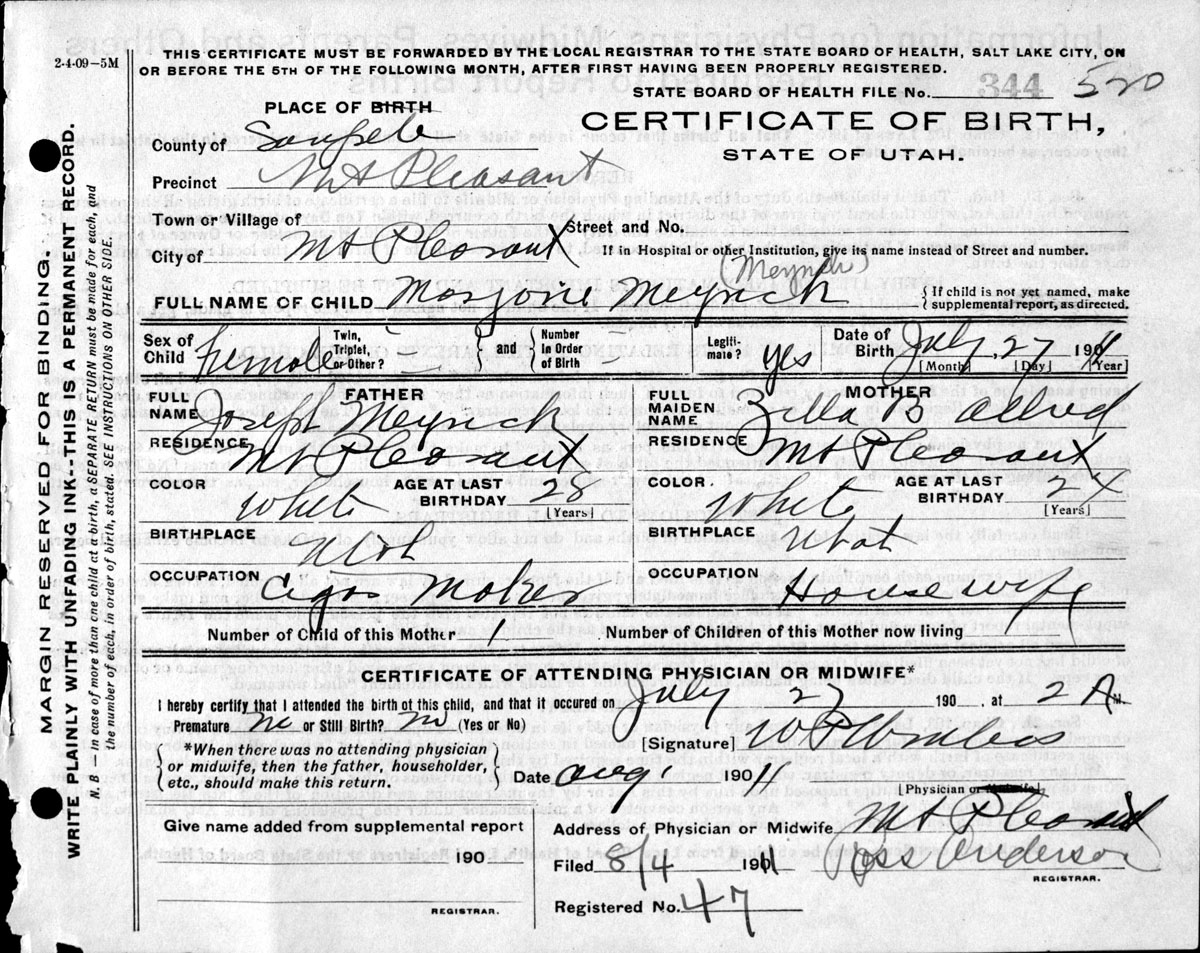 2-4-09—5M
THIS CERTIFICATE MUST BE FORWARDED BY THE LOCAL REGISTRAR TO THE STATE BOARD OF HEALTH, SALT LAKE CITY, ON
OR BEFORE THE 5TH OF THE FOLLOWING MONTH, AFTER FIRST HAVING BEEN PROPERLY REGISTERED.
STATE BOARD OF HEALTH FILE No. 344 520
PLACE OF BIRTH
CERTIFICATE OF BIRTH,
STATE OF UTAH.
County of Sanpete
Precinct Mt Pleasant
Town or Village of
Street and No.
City of Mt Pleasant
If in Hospital or other Institution, give its name instead of Street and number.
FULL NAME OF CHILD Marjorie Meyrick
If child is not yet named, make
supplemental report, as directed.
Sex of Child Female
Twin, Triplet, or Other? — and Number in Order of Birth —
Legiti-mate? yes
Date of Birth July 27 1901
[Month] [Day] [Year]
FATHER
FULL NAME Joseph Meyrick
RESIDENCE Mt Pleasant
COLOR White AGE AT LAST BIRTHDAY 28
[Years]
BIRTHPLACE Utah
OCCUPATION Cigar Maker
MOTHER
FULL MAIDEN NAME Zella B Allred
RESIDENCE Mt Pleasant
COLOR. White AGE AT LAST BIRTHDAY
[Years]
BIRTHPLACE Utah
OCCUPATION Housewife
Number of Child of this Mother 1 Number of Children of this Mother now living 1
CERTIFICATE OF ATTENDING PHYSICIAN OR MIDWIFE*
I hereby certify that I attended the birth of this child, and that it occured on July 27 190 , at 2 A M.
Premature no or Still Birth? no (Yes or No)
*When there was no attending physician
or midwife, then the father, householder,
etc., should make this return.
[Signature]
Date Aug 1 1911
[Physician or Midwife]
Give name added from supplemental report
190
REGISTRAR.
Address of Physician or Midwife Mt Pleasant
Filed 8/4 1911 Anderson
REGISTRAR.
Registered No. 47
MARGIN RESERVED FOR BINDING.
WRITE PLAINLY WITH UNFADING INK--THIS IS A PERMANENT RECORD.
N. B — In case of more than one child at a birth, a SEPARATE RETURN must be made for each, and
the number of each, in order of birth, stated. SEE INSTRUCTIONS ON OTHER SIDE.